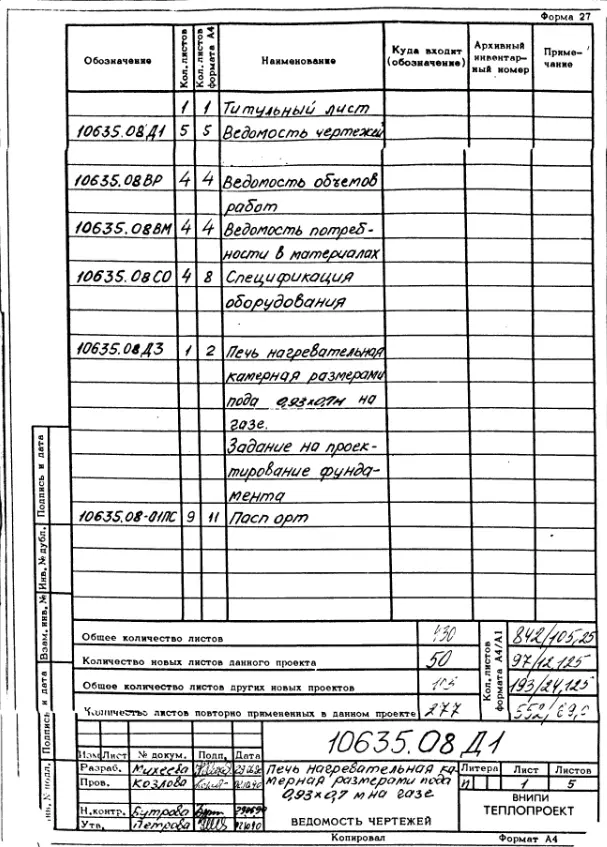 Форма 27
Обозначение Кол. листов Кол. листов формата А4 Наименование Куда входит (обозначение) Архивный инвентарный номер Примечание
1 1 Титульный лист
10635.08Д1 5 5 Ведомость чертежей
10635.08ВР 4 4 Ведомость объемов
работ
10635.08ВМ 4 4 Ведомость потреб-
ности в материалах
10635.08СО 4 8 Спецификация
оборудования
10635.08Д3 1 2 Печь нагревательная
камерная размерами
пода 0,93х0,7м на
газе.
Задание на проек-
тирование фунда-
мента
10635.08-01ПС 9 11 Паспорт
Подпись и дата
Инв. № дубл.
Взам. инв. №
Подпись и дата
Инв. № подл.
Общее количество листов 430
Количество новых листов данного проекта 50
Общее количество листов других новых проектов
Количество листов повторно примененных в данном проекте 277
Кол. листов формата А4/А1
842/105,25
97/12.125
193/24,125
552/69,0
10635.08Д1
Изм Лист № докум. Подп. Дата
Разраб. Михеева
Пров. Козлова
Н.контр. Бутрова
Утв. Петрова
Печь нагревательная ка-
мерная размерами пода
0,93х0,7 м на газе
ВЕДОМОСТЬ ЧЕРТЕЖЕЙ
Литера Лист Листов
И 1 5
ВНИПИ
ТЕПЛОПРОЕКТ
Копировал Формат А4